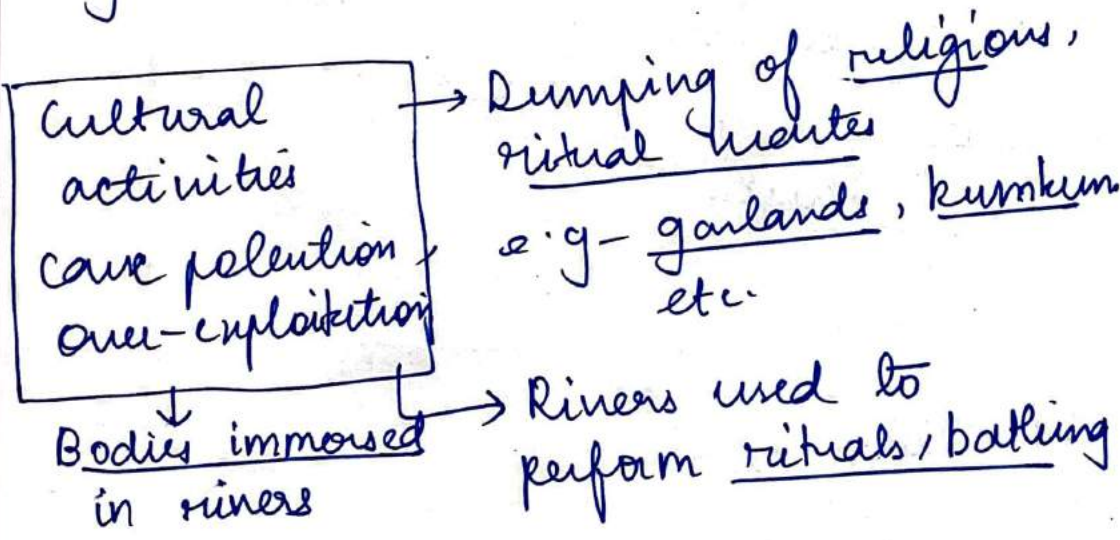 Cultural
activities
cause polention /
over-exploitation
→ Dumping of religious,
ritual wastes
e.g- garlands, kumkum
etc.
→ Rivers used to
perform rituals / bathing
Bodies immorsed
in rivers